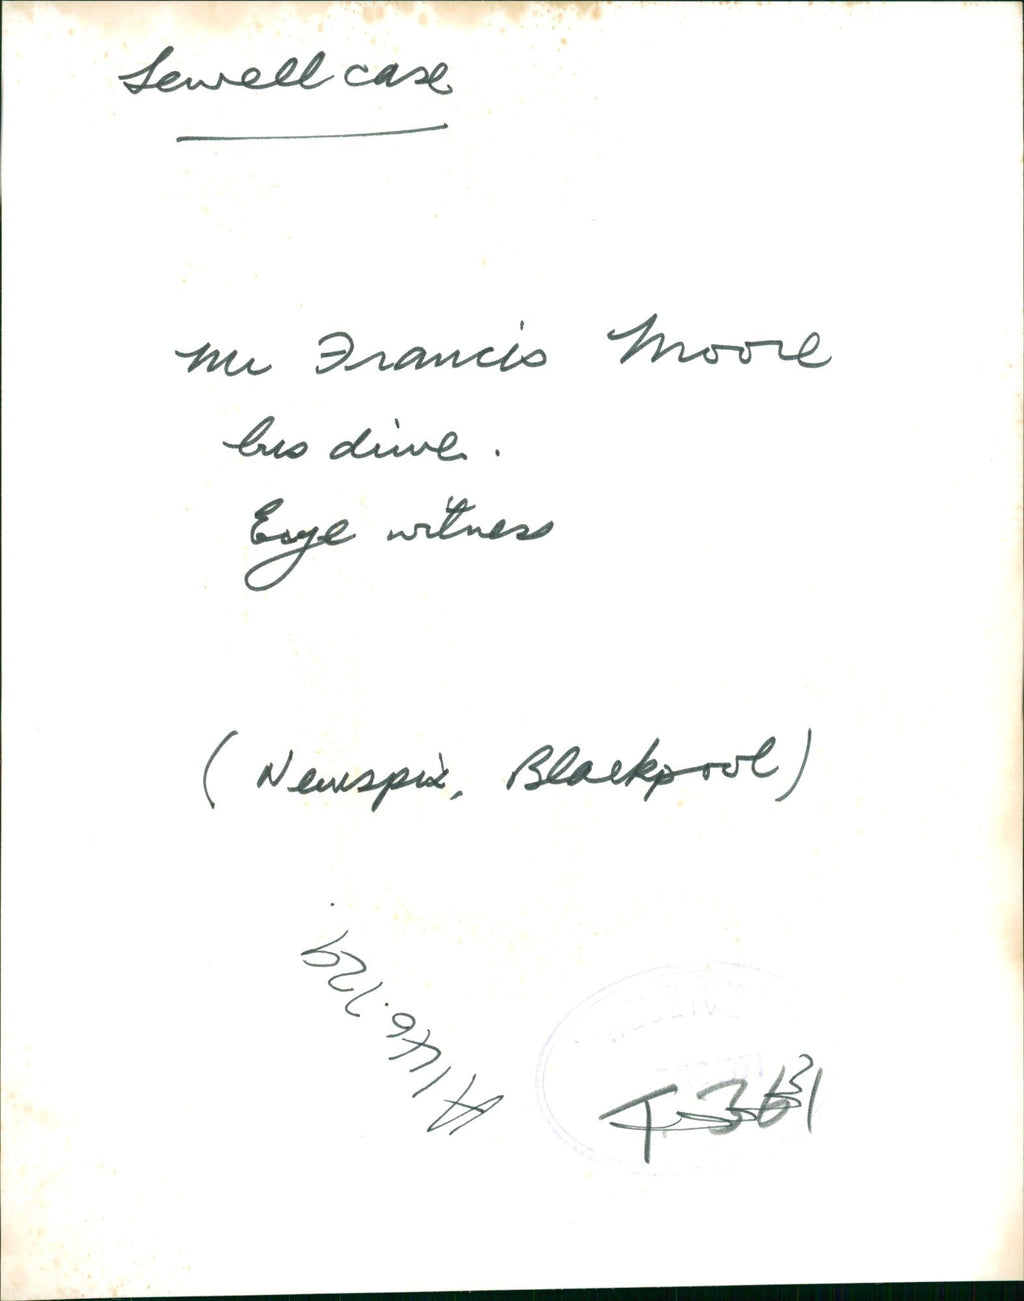 Sewell case
Mr Francis Moore
bus driver.
Eye witness
(Newspix, Blackpool)
A146.729
T 361